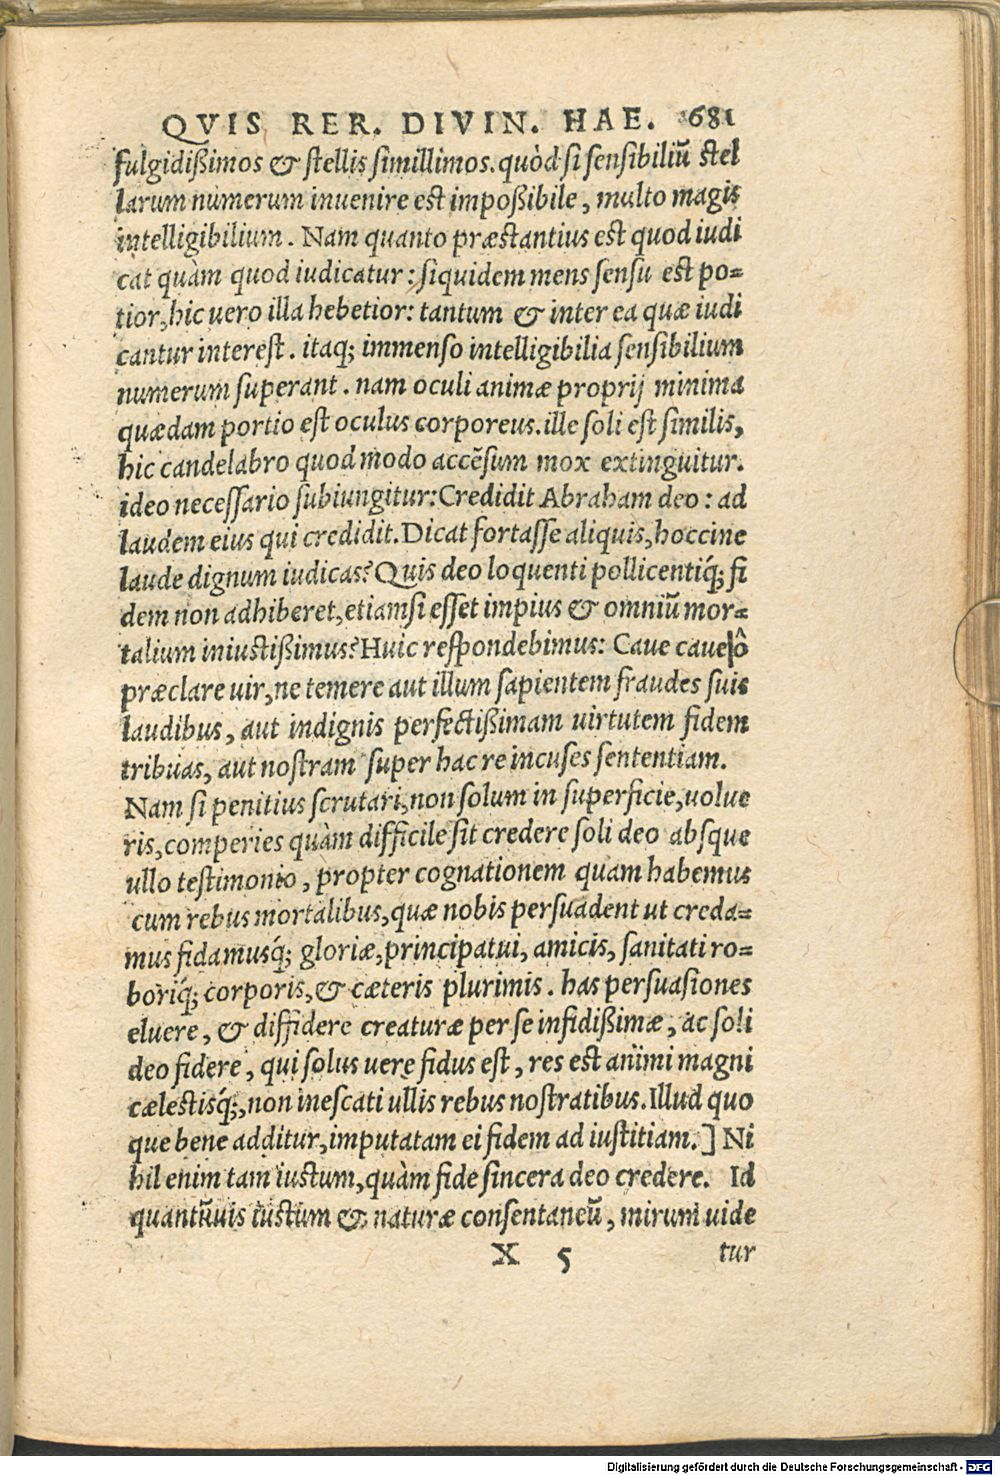 QVIS RER. DIVIN. HAE. 681
fulgidißimos & stellis simillimos. quòd si sensibiliũ stel
larum numerum inuenire est impoßibile, multo magis
intelligibilium. Nam quanto præstantius est quod iudi
cat quàm quod iudicatur: siquidem mens sensu est po-
tior, hic uero illa hebetior: tantum & inter ea quæ iudi
cantur interest. itaq; immenso intelligibilia sensibilium
numerum superant. nam oculi animæ proprij minima
quædam portio est oculus corporeus. ille soli est similis,
hic candelabro quod modo accẽsum mox extinguitur.
ideo necessario subiungitur: Credidit Abraham deo: ad
laudem eius qui credidit. Dicat fortasse aliquis, hoccine
laude dignum iudicas? Quis deo loquenti pollicentiq́; fi
dem non adhiberet, etiamsi esset impius & omniũ mor-
talium iniustißimus? Huic respondebimus: Caue caue ô
præclare uir, ne temere aut illum sapientem fraudes suis
laudibus, aut indignis perfectißimam uirtutem fidem
tribuas, aut nostram super hac re incuses sententiam.
Nam si penitius scrutari, non solum in superficie, uolue
ris, comperies quàm difficile sit credere soli deo absque
ullo testimonio, propter cognationem quam habemus
cum rebus mortalibus, quæ nobis persuadent ut creda-
mus fidamusq́; gloriæ, principatui, amicis, sanitati ro-
boriq́; corporis, & cæteris plurimis. has persuasiones
eluere, & diffidere creaturæ per se infidißimæ, ac soli
deo fidere, qui solus uere fidus est, res est animi magni
cælestisq́;, non inescati ullis rebus nostratibus. Illud quo
que bene additur, imputatam ei fidem ad iustitiam.] Ni
hil enim tam iustum, quàm fide sincera deo credere. Id
quantũuis iustum & naturæ consentaneũ, mirum uide
X 5 tur
Digitalisierung gefördert durch die Deutsche Forschungsgemeinschaft - DFG